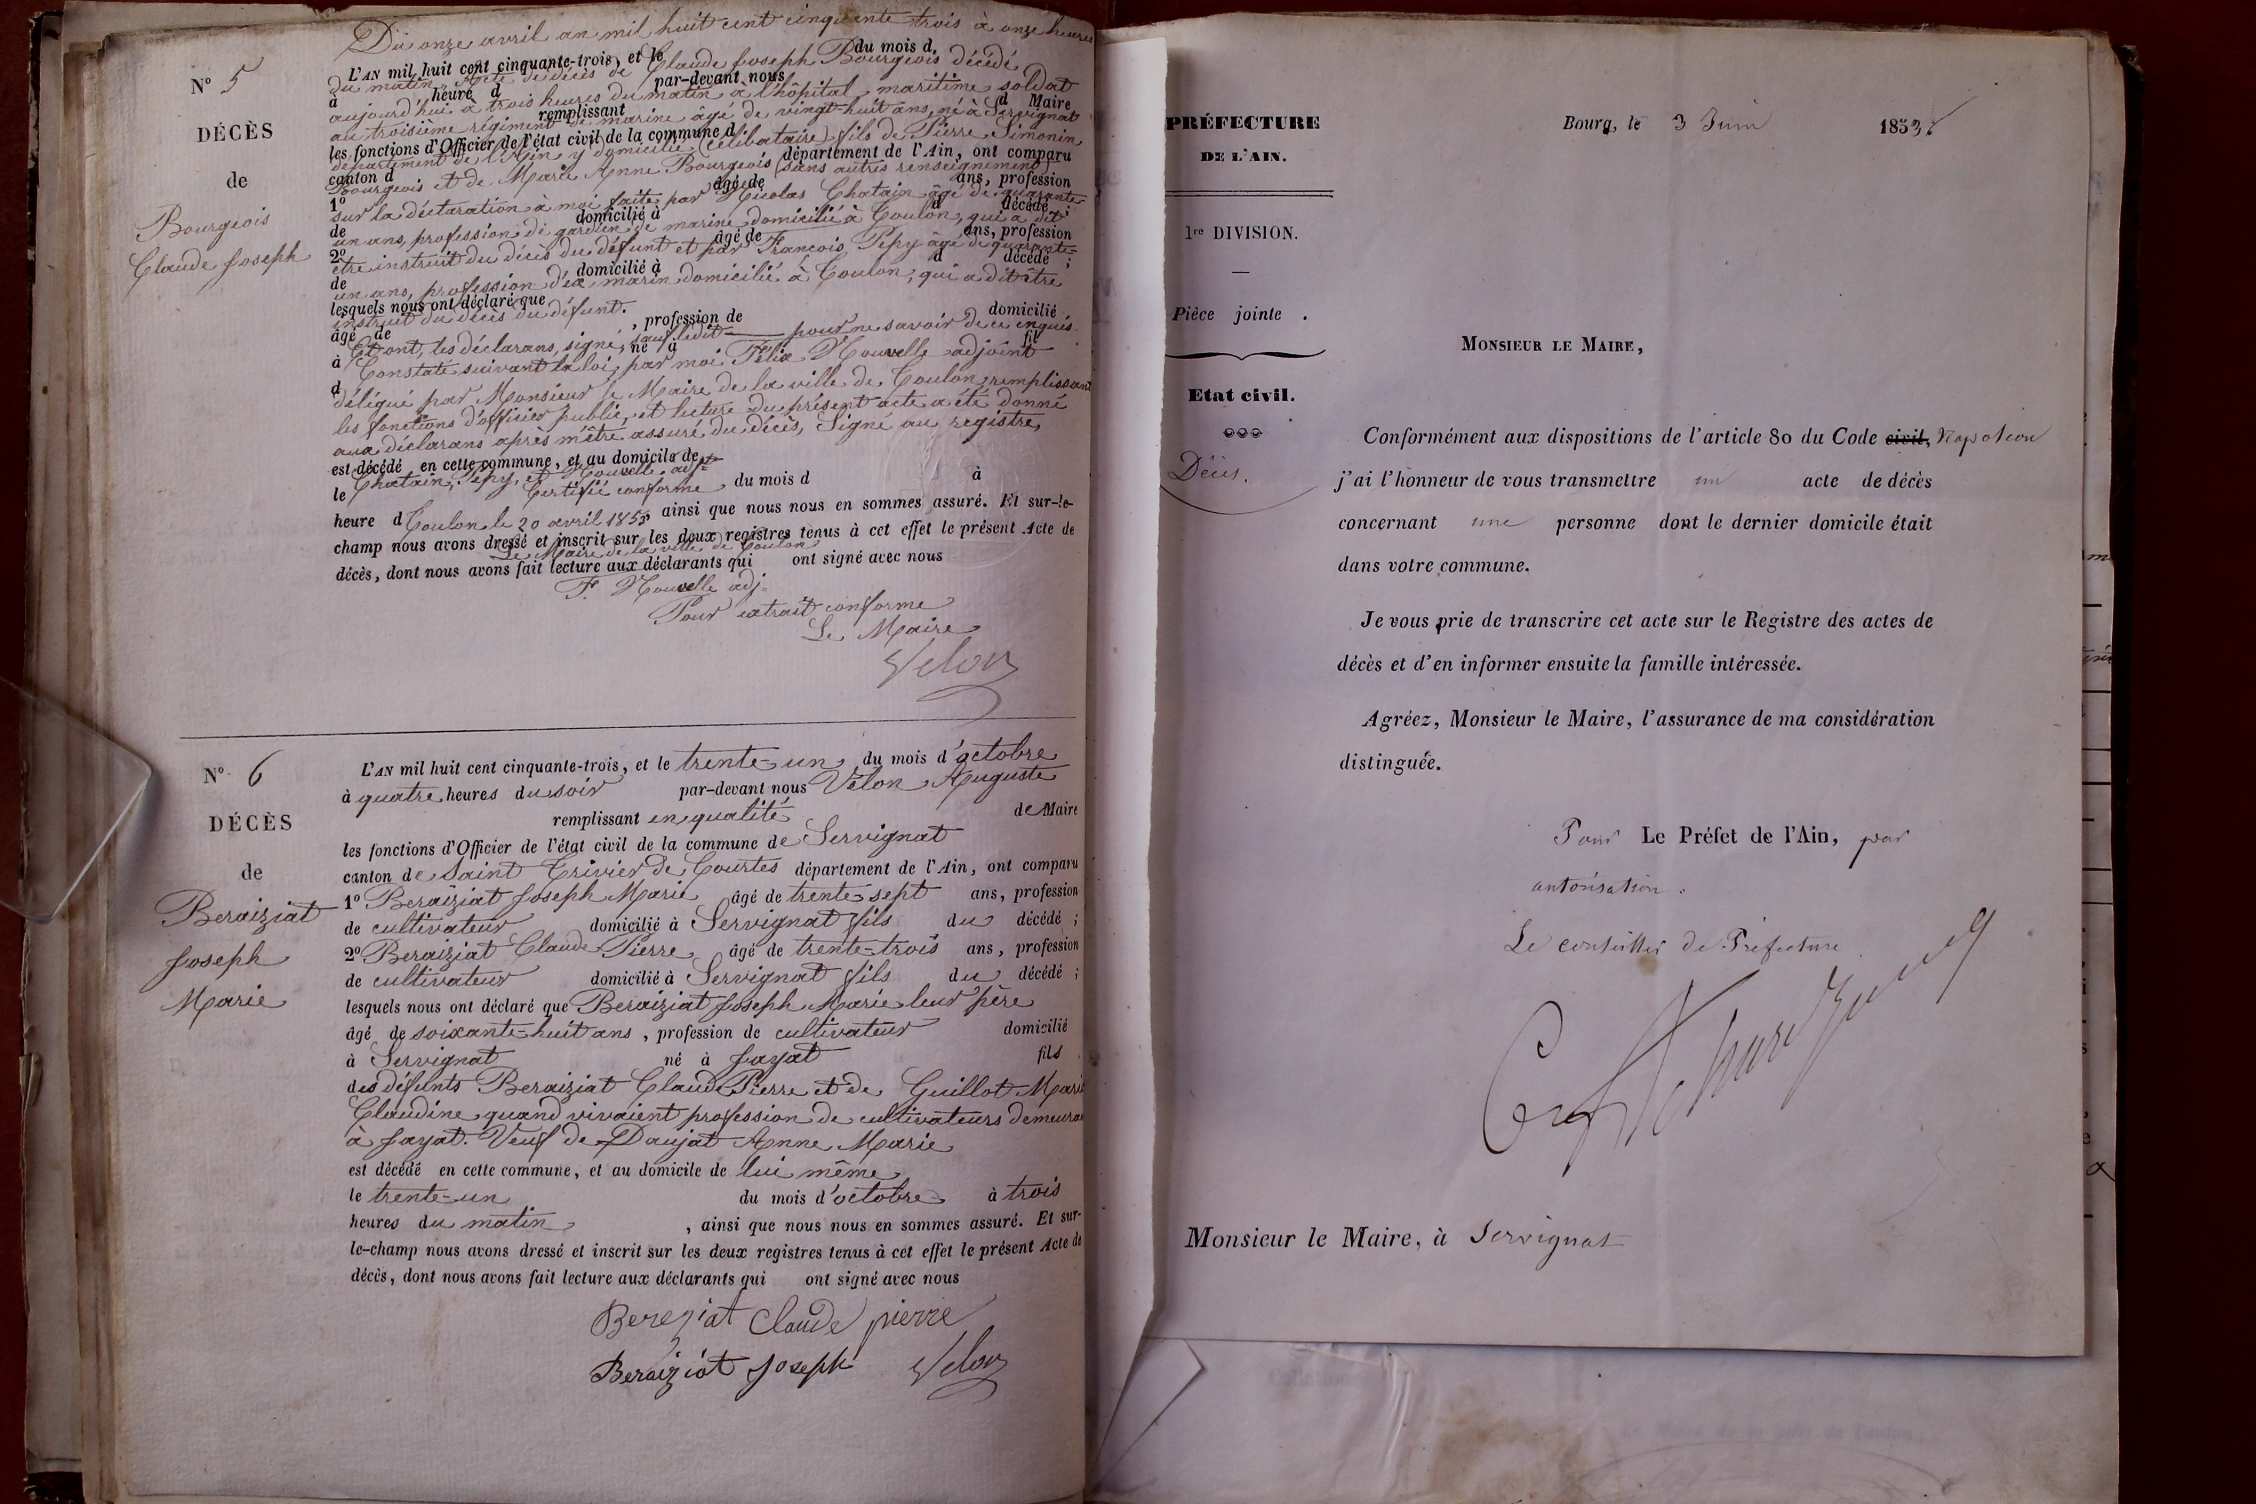 Nº 5
DÉCÈS
de
Bourgeois
Claude Joseph
Du onze avril an mil huit cent cinquante trois à onze heures
L'AN mil huit cent cinquante-trois, et le du mois d
du matin Acte de décès de Claude Joseph Bourgeois décédé
à heure d par-devant nous
aujourd'hui à trois heures du matin à l'hôpital maritime soldat
remplissant d Maire
au troisième régiment de marine âgé de vingt-huit ans, né à Servignat
les fonctions d'Officier de l'état civil de la commune d
département de l'Ain y domicilié (célibataire) fils de Pierre Simonin
canton d département de l'Ain, ont comparu
Bourgeois et de Marie Anne Bourgeois (sans autres renseignements)
1º âgé de ans, profession
sur la déclaration a moi faite par Nicolas Chatain âgé de quarante
de domicilié à d décédé ;
un ans, profession de gardien de marine domicilié à Toulon, qui a dit
2º âgé de ans, profession
être instruit du décès du défunt et par François Pepy âgé de quarante=
de domicilié à d décédé ;
un ans, profession d'ex marin domicilié à Toulon, qui a dit être
lesquels nous ont déclaré que
instruit du décès du défunt.
âgé de , profession de domicilié
Et ont, les déclarans, signé, sauf ledit pour ne savoir de ce enquis.
à né à fil
Constaté suivant la loi, par moi Félix Nouvelle adjoint
d
délégué par Monsieur le Maire de la ville de Toulon, remplissant
les fonctions d'officier public, et lecture du présent acte a été donné
aux déclarans après m'être assuré du décès, Signé au registre,
est décédé en cette commune, et au domicile de
Chatain, Pepy, et Nouvelle adjt
le Certifié conforme du mois d à
heure d Toulon le 20 avril 1853 ainsi que nous nous en sommes assuré. Et sur-le-
champ nous avons dressé et inscrit sur les deux registres tenus à cet effet le présent Acte de
Le Maire de la ville de Toulon
décès, dont nous avons fait lecture aux déclarants qui ont signé avec nous
F. Nouvelle adj.
Pour extrait conforme
Le Maire
Velon
Nº 6
DÉCÈS
de
Beraiziat
Joseph
Marie
L'AN mil huit cent cinquante-trois, et le trente-un du mois d'octobre
à quatre heures du soir par-devant nous Velon Auguste
remplissant en qualité de Maire
les fonctions d'Officier de l'état civil de la commune de Servignat
canton de Saint Trivier de Courtes département de l'Ain, ont comparu
1º Beraiziat Joseph Marie âgé de trente sept ans, profession
de cultivateur domicilié à Servignat fils du décédé ;
2º Beraiziat Claude Pierre âgé de trente-trois ans, profession
de cultivateur domicilié à Servignat fils du décédé ;
lesquels nous ont déclaré que Beraiziat Joseph Marie leur père
âgé de soixante-huit ans, profession de cultivateur domicilié
à Servignat né à Jayat fils
des défunts Beraiziat Claude Pierre et de Guillot Marie
Claudine quand vivaient profession de cultivateurs demeurant
à Jayat. Veuf de Daujat Anne Marie
est décédé en cette commune, et au domicile de lui même
le trente-un du mois d'octobre à trois
heures du matin, ainsi que nous nous en sommes assuré. Et sur-
le-champ nous avons dressé et inscrit sur les deux registres tenus à cet effet le présent Acte de
décès, dont nous avons fait lecture aux déclarants qui ont signé avec nous
Bereziat Claude pierre
Beraiziat Joseph Velon
PRÉFECTURE
DE L'AIN.
1re DIVISION.
Pièce jointe .
Etat civil.
Décès.
Bourg, le 3 Juin 1853
MONSIEUR LE MAIRE,
Conformément aux dispositions de l'article 80 du Code civil, Napoléon
j'ai l'honneur de vous transmettre un acte de décès
concernant une personne dont le dernier domicile était
dans votre commune.
Je vous prie de transcrire cet acte sur le Registre des actes de
décès et d'en informer ensuite la famille intéressée.
Agréez, Monsieur le Maire, l'assurance de ma considération
distinguée.
Pour Le Préfet de l'Ain, par
autorisation.
Le conseiller de Préfecture
Monsieur le Maire, à Servignat